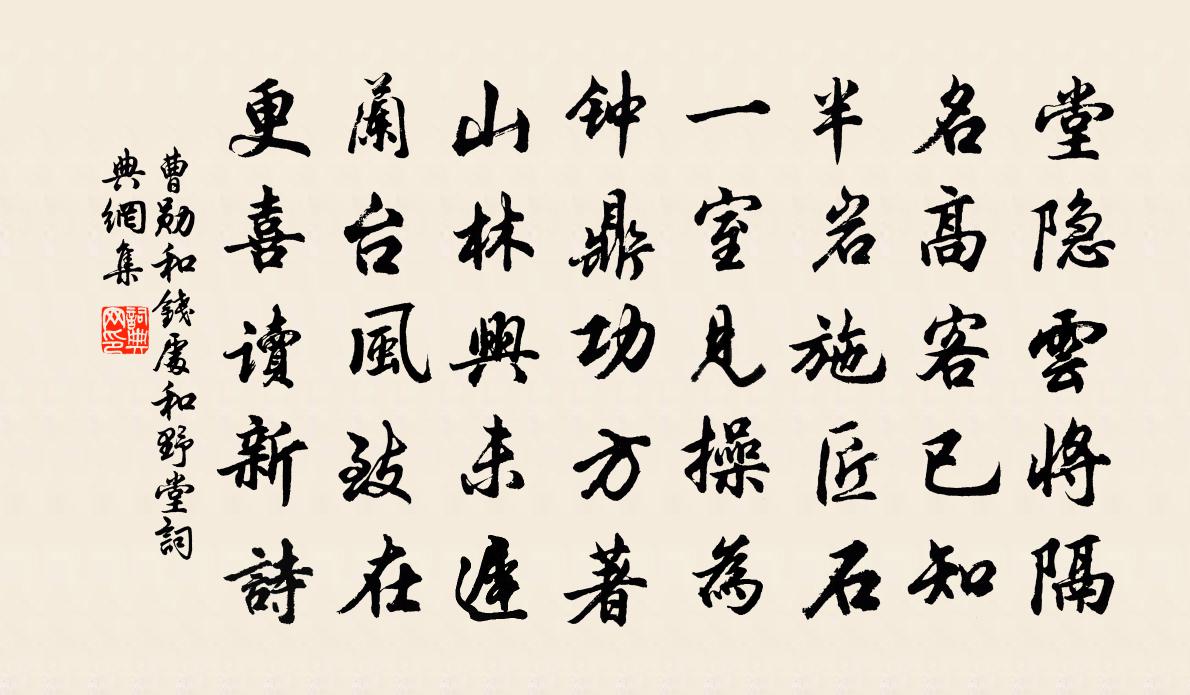 堂隐雲將隔
名高客已知
半岩施匠石
一室見操為
钟鼎功方著
山林興未遲
蘭台風致在
更喜讀新詩
曹勛和錢處和野堂詞
典網集
詞典
网印